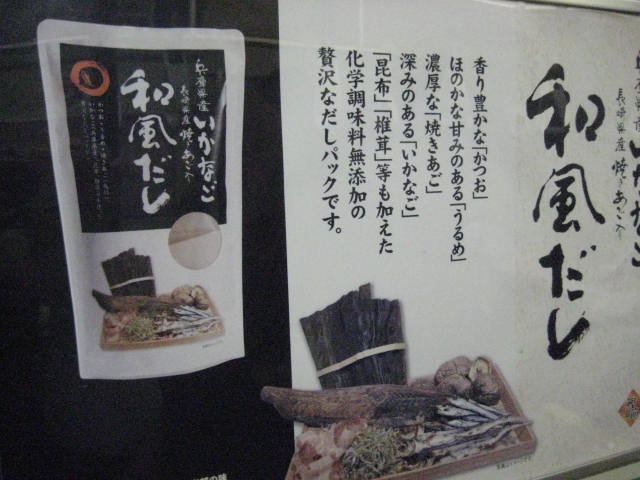 兵庫県産
いかなご
長崎県産 焼きあご入
和風だし
香り豊かな「かつお」
ほのかな甘みのある「うるめ」
濃厚な「焼きあご」
深みのある「いかなご」
「昆布」「椎茸」等も加えた
化学調味料無添加の
贅沢なだしパックです。
兵庫県産
いかなご
長崎県産 焼きあご入
和風だし